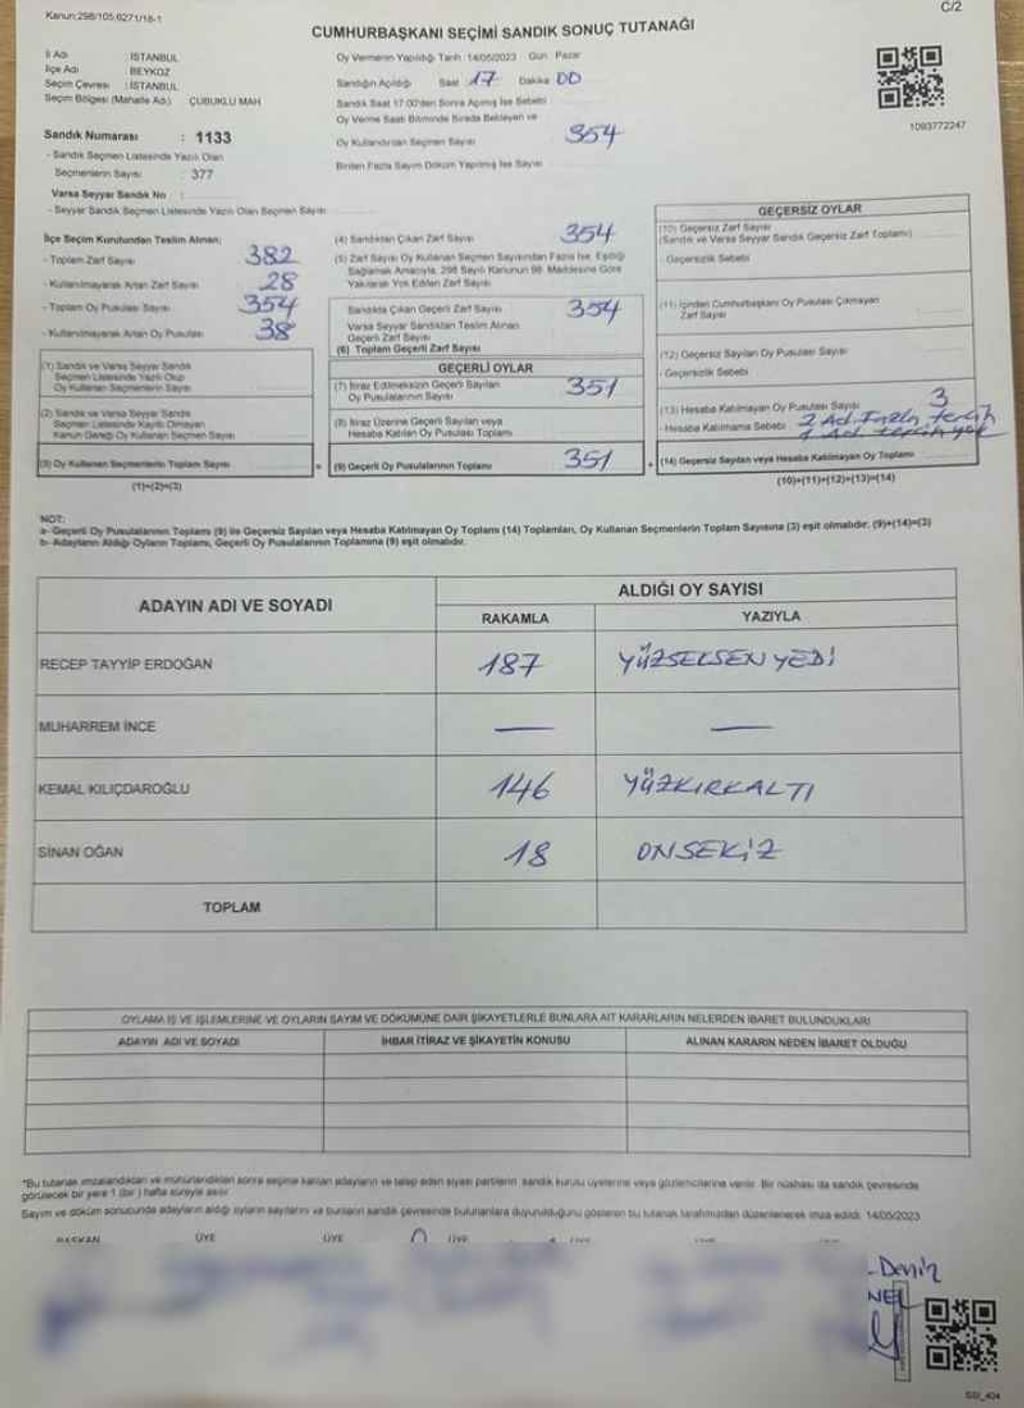 Kanun:298/105,6271/18-1
C/2
CUMHURBAŞKANI SEÇİMİ SANDIK SONUÇ TUTANAĞI
İl Adı : İSTANBUL
İlçe Adı : BEYKOZ
Seçim Çevresi : İSTANBUL
Seçim Bölgesi (Mahalle Adı) ÇUBUKLU MAH
Sandık Numarası : 1133
- Sandık Seçmen Listesinde Yazılı Olan
Seçmenlerin Sayısı : 377
Varsa Seyyar Sandık No :
- Seyyar Sandık Seçmen Listesinde Yazılı Olan Seçmen Sayısı
Oy Vermenin Yapıldığı Tarih 14/05/2023 Gün Pazar
Sandığın Açıldığı Saat 17 Dakika 00
Sandık Saat 17.00'den Sonra Açılmış İse Sebebi
Oy Verme Saati Bitiminde Sırada Bekleyen ve
Oy Kullandırılan Seçmen Sayısı 354
Birden Fazla Sayım Döküm Yapılmış İse Sayısı
1093772247
İlçe Seçim Kurulundan Teslim Alınan;
- Toplam Zarf Sayısı 382
- Kullanılmayarak Artan Zarf Sayısı 28
- Toplam Oy Pusulası Sayısı 354
- Kullanılmayarak Artan Oy Pusulası 38
(1) Sandık ve Varsa Seyyar Sandık
Seçmen Listesinde Yazılı Olup
Oy Kullanan Seçmenlerin Sayısı
(2) Sandık ve Varsa Seyyar Sandık
Seçmen Listesinde Kayıtlı Olmayan
Kanun Gereği Oy Kullanan Seçmen Sayısı
(3) Oy Kullanan Seçmenlerin Toplam Sayısı
(1)+(2)=(3)
(4) Sandıktan Çıkan Zarf Sayısı 354
(5) Zarf Sayısı Oy Kullanan Seçmen Sayısından Fazla İse, Eşitliği
Sağlamak Amacıyla, 298 Sayılı Kanunun 98. Maddesine Göre
Yakılarak Yok Edilen Zarf Sayısı
Sandıkta Çıkan Geçerli Zarf Sayısı 354
Varsa Seyyar Sandıktan Teslim Alınan
Geçerli Zarf Sayısı
(6) Toplam Geçerli Zarf Sayısı
GEÇERLİ OYLAR
(7) İtiraz Edilmeksizin Geçerli Sayılan
Oy Pusulalarının Sayısı 351
(8) İtiraz Üzerine Geçerli Sayılan veya
Hesaba Katılan Oy Pusulası Toplamı
(9) Geçerli Oy Pusulalarının Toplamı 351
GEÇERSİZ OYLAR
(10) Geçersiz Zarf Sayısı
(Sandık ve Varsa Seyyar Sandık Geçersiz Zarf Toplamı)
- Geçersizlik Sebebi
(11) İçinden Cumhurbaşkanı Oy Pusulası Çıkmayan
Zarf Sayısı
(12) Geçersiz Sayılan Oy Pusulası Sayısı
- Geçersizlik Sebebi
(13) Hesaba Katılmayan Oy Pusulası Sayısı 3
- Hesaba Katılmama Sebebi 2 Ad. Fazla tercih
1 Ad tercih yok
(14) Geçersiz Sayılan veya Hesaba Katılmayan Oy Toplamı
(10)+(11)+(12)+(13)=(14)
NOT:
a- Geçerli Oy Pusulalarının Toplamı (9) ile Geçersiz Sayılan veya Hesaba Katılmayan Oy Toplamı (14) Toplamları, Oy Kullanan Seçmenlerin Toplam Sayısına (3) eşit olmalıdır. (9)+(14)=(3)
b- Adayların Aldığı Oyların Toplamı, Geçerli Oy Pusulalarının Toplamına (9) eşit olmalıdır.
ADAYIN ADI VE SOYADI ALDIĞI OY SAYISI
RAKAMLA YAZIYLA
RECEP TAYYİP ERDOĞAN 187 YÜZSEKSENYEDİ
MUHARREM İNCE — —
KEMAL KILIÇDAROĞLU 146 YÜZKIRKALTI
SİNAN OĞAN 18 ONSEKİZ
TOPLAM
OYLAMA İŞ VE İŞLEMLERİNE VE OYLARIN SAYIM VE DÖKÜMÜNE DAİR ŞİKAYETLERLE BUNLARA AİT KARARLARIN NELERDEN İBARET BULUNDUKLARI
ADAYIN ADI VE SOYADI İHBAR İTİRAZ VE ŞİKAYETİN KONUSU ALINAN KARARIN NEDEN İBARET OLDUĞU
*Bu tutanak imzalandıktan ve mühürlendikten sonra seçime katılan adayların ve talep eden siyasi partilerin sandık kurulu üyelerine veya gözlemcilerine verilir. Bir nüshası da sandık çevresinde
görülecek bir yere 1 (bir) hafta süreyle asılır.
Sayım ve döküm sonucunda adayların aldığı oyların sayılarını ve bunların sandık çevresinde bulunanlara duyurulduğunu gösteren bu tutanak tarafımızdan düzenlenerek imza edildi. 14/05/2023
BAŞKAN ÜYE ÜYE ÜYE
Deniz